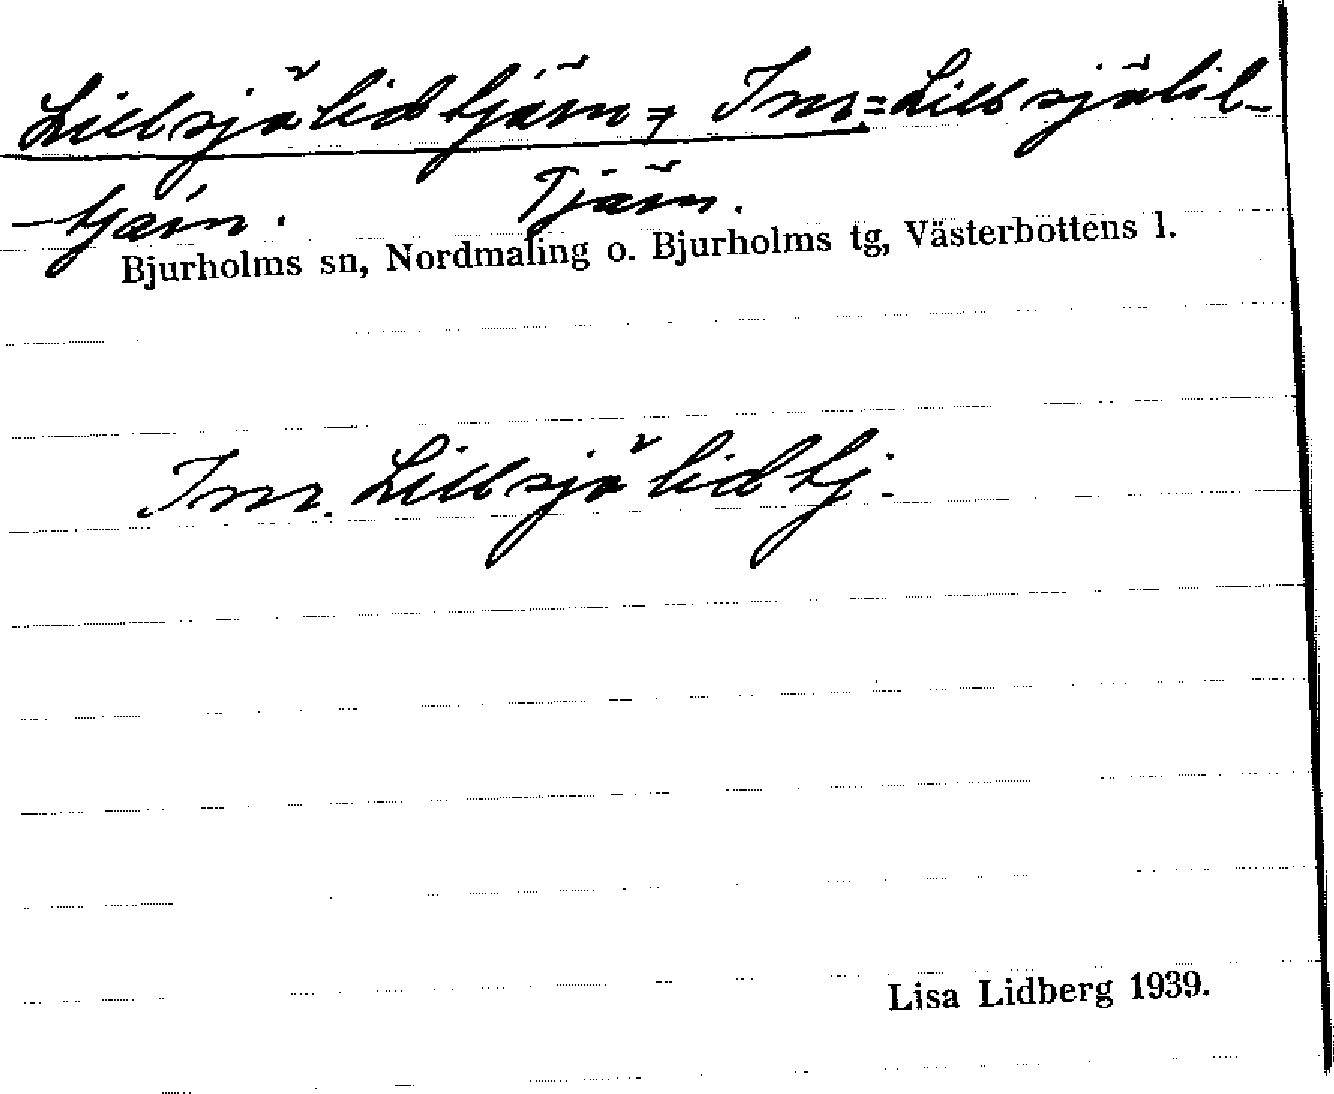 Lillsjölidtjärn, Inr. Lillsjölid-
tjärn. Tjärn.
Bjurholms sn, Nordmaling o. Bjurholms tg, Västerbottens l.
Inr. Lillsjölidtj.
Lisa Lidberg 1939.